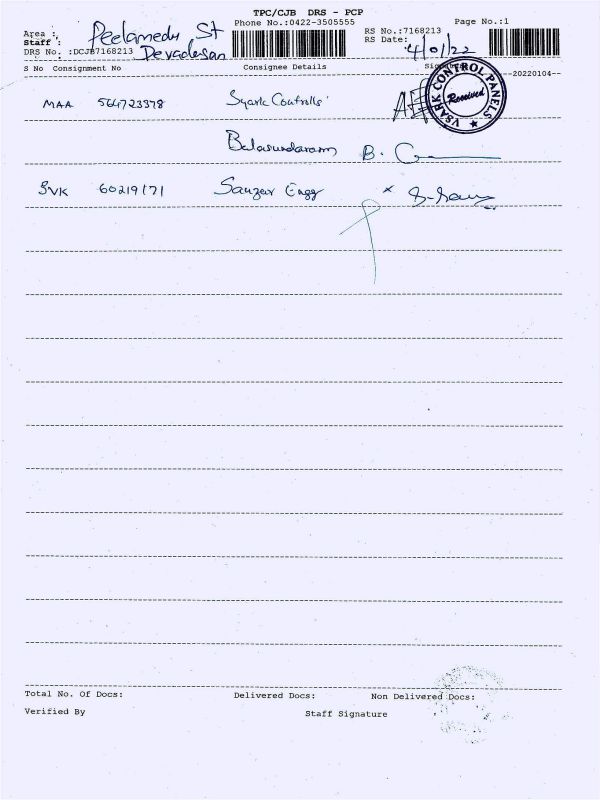 TPC/CJB DRS - PCP
Phone No.:0422-3505555
Page No.:1
Area : Peelamedu St
RS No.:7168213
Staff : Devadesan
RS Date: 4/01/22
DRS No. :DCJB7168213
S No Consignment No Consignee Details
--20220104--
VSARK CONTROL PANELS
Received
MAA 564723378
Balasundaram B.
SVK 60219171 Sanzar Engg x
Total No. Of Docs: Delivered Docs: Non Delivered Docs:
Verified By Staff Signature